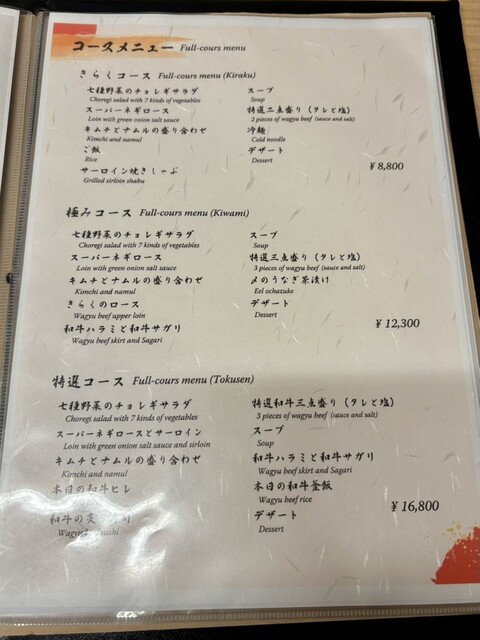 コースメニュー Full-cours menu
きらくコース Full-cours menu (Kiraku)
七種野菜のチョレギサラダ
Choregi salad with 7 kinds of vegetables
スーパーネギロース
Loin with green onion salt sauce
キムチとナムルの盛り合わせ
Kimchi and namul
ご飯
Rice
サーロイン焼きしゃぶ
Grilled sirloin shabu
スープ
Soup
特選二点盛り(タレと塩)
2 pieces of wagyu beef (sauce and salt)
冷麺
Cold noodle
デザート
Dessert
¥ 8,800
極みコース Full-cours menu (Kiwami)
七種野菜のチョレギサラダ
Choregi salad with 7 kinds of vegetables
スーパーネギロース
Loin with green onion salt sauce
キムチとナムルの盛り合わせ
Kimchi and namul
きらくのロース
Wagyu beef upper loin
和牛ハラミと和牛サガリ
Wagyu beef skirt and Sagari
スープ
Soup
特選三点盛り(タレと塩)
3 pieces of wagyu beef (sauce and salt)
〆のうなぎ茶漬け
Eel ochazuke
デザート
Dessert
¥ 12,300
特選コース Full-cours menu (Tokusen)
七種野菜のチョレギサラダ
Choregi salad with 7 kinds of vegetables
スーパーネギロースとサーロイン
Loin with green onion salt sauce and sirloin
キムチとナムルの盛り合わせ
Kimchi and namul
本日の和牛ヒレ
和牛の炙
特選和牛三点盛り(タレと塩)
3 pieces of wagyu beef (sauce and salt)
スープ
Soup
和牛ハラミと和牛サガリ
Wagyu beef skirt and Sagari
本日の和牛釜飯
Wagyu beef rice
デザート
Dessert
¥ 16,800